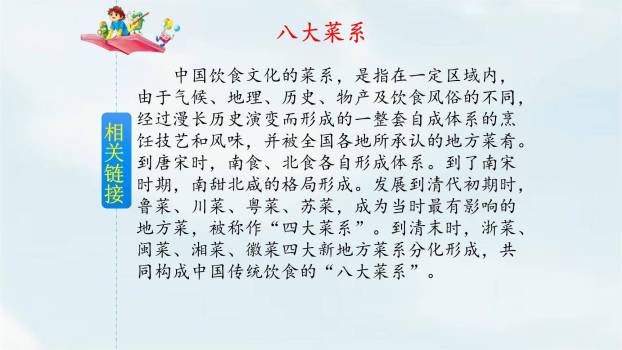 八大菜系
中国饮食文化的菜系，是指在一定区域内，
由于气候、地理、历史、物产及饮食风俗的不同，
经过漫长历史演变而形成的一整套自成体系的烹
饪技艺和风味，并被全国各地所承认的地方菜肴。
到唐宋时，南食、北食各自形成体系。到了南宋
时期，南甜北咸的格局形成。发展到清代初期时，
鲁菜、川菜、粤菜、苏菜，成为当时最有影响的
地方菜，被称作“四大菜系”。到清末时，浙菜、
闽菜、湘菜、徽菜四大新地方菜系分化形成，共
同构成中国传统饮食的“八大菜系”。
相关链接